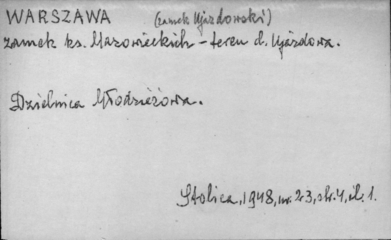 WARSZAWA (zamek Ujazdowski)
zamek ks. Mazowieckich – teren d. Ujazdowa.
Dzielnica Młodzieżowa.
Stolica, 1948, nr. 23, str. 4, il. 1.